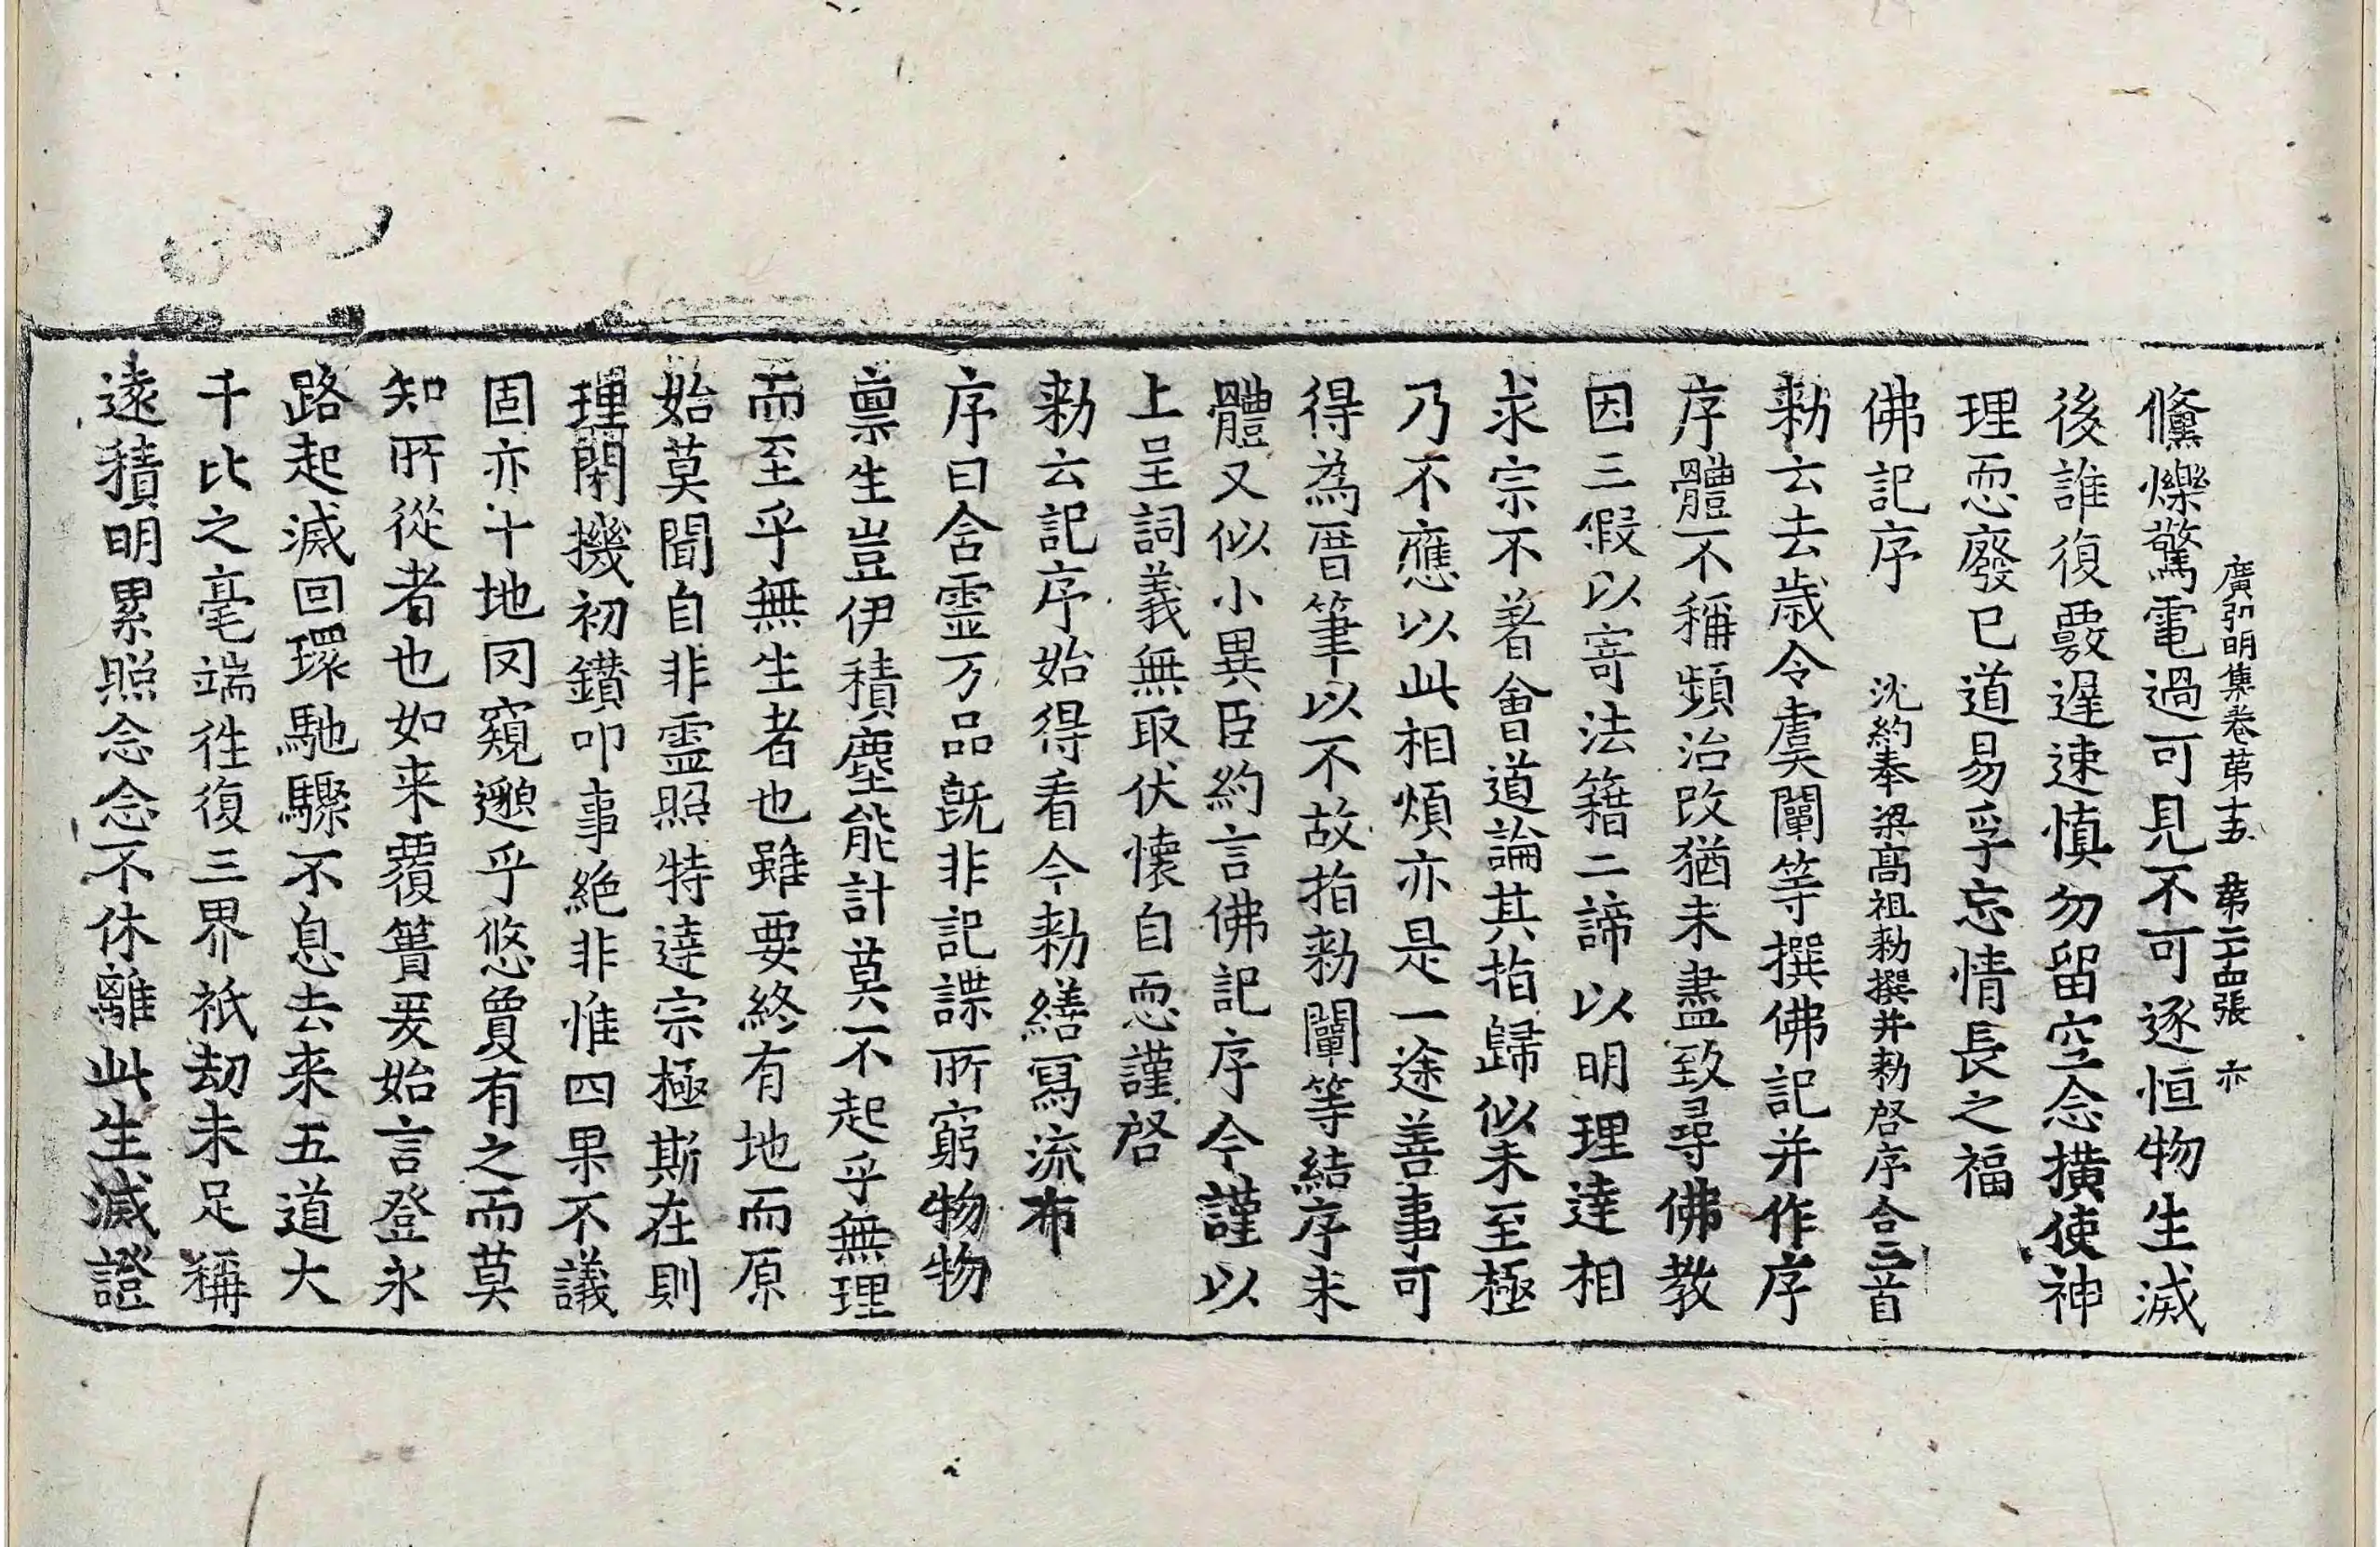 廣弘明集卷第十五 第二十四張 亦
儵爍驚電過可見不可逐恒物生滅
後誰復覈遲速慎勿留空念橫使神
理恧廢已道易孚忘情長之福
佛記序 沈約奉梁高祖勑撰并勑啓序合三首
勑云去歲令虞闡等撰佛記并作序
序體不稱頻治改猶未盡致尋佛教
因三假以寄法籍二諦以明理達相
求宗不著會道論其指歸似未至極
乃不應以此相煩亦是一途善事可
得為厝筆以不故指勑闡等結序未
體又似小異臣約言佛記序今謹以
上呈詞義無取伏懷自恧謹啓
勑云記序始得看今勑繕寫流布
序曰含靈万品既非記諜所窮物物
禀生豈伊積塵能計莫不起乎無理
而至乎無生者也雖要終有地而原
始莫聞自非靈照特達宗極斯在則
理閑機初鑽叩事絶非惟四果不議
固亦十地罔窺邈乎悠夐有之而莫
知所從者也如来覆簣爰始言登永
路起滅回環馳驟不息去来五道大
千比之毫端往復三界祇劫未足稱
遠積明累照念念不休離此生滅證